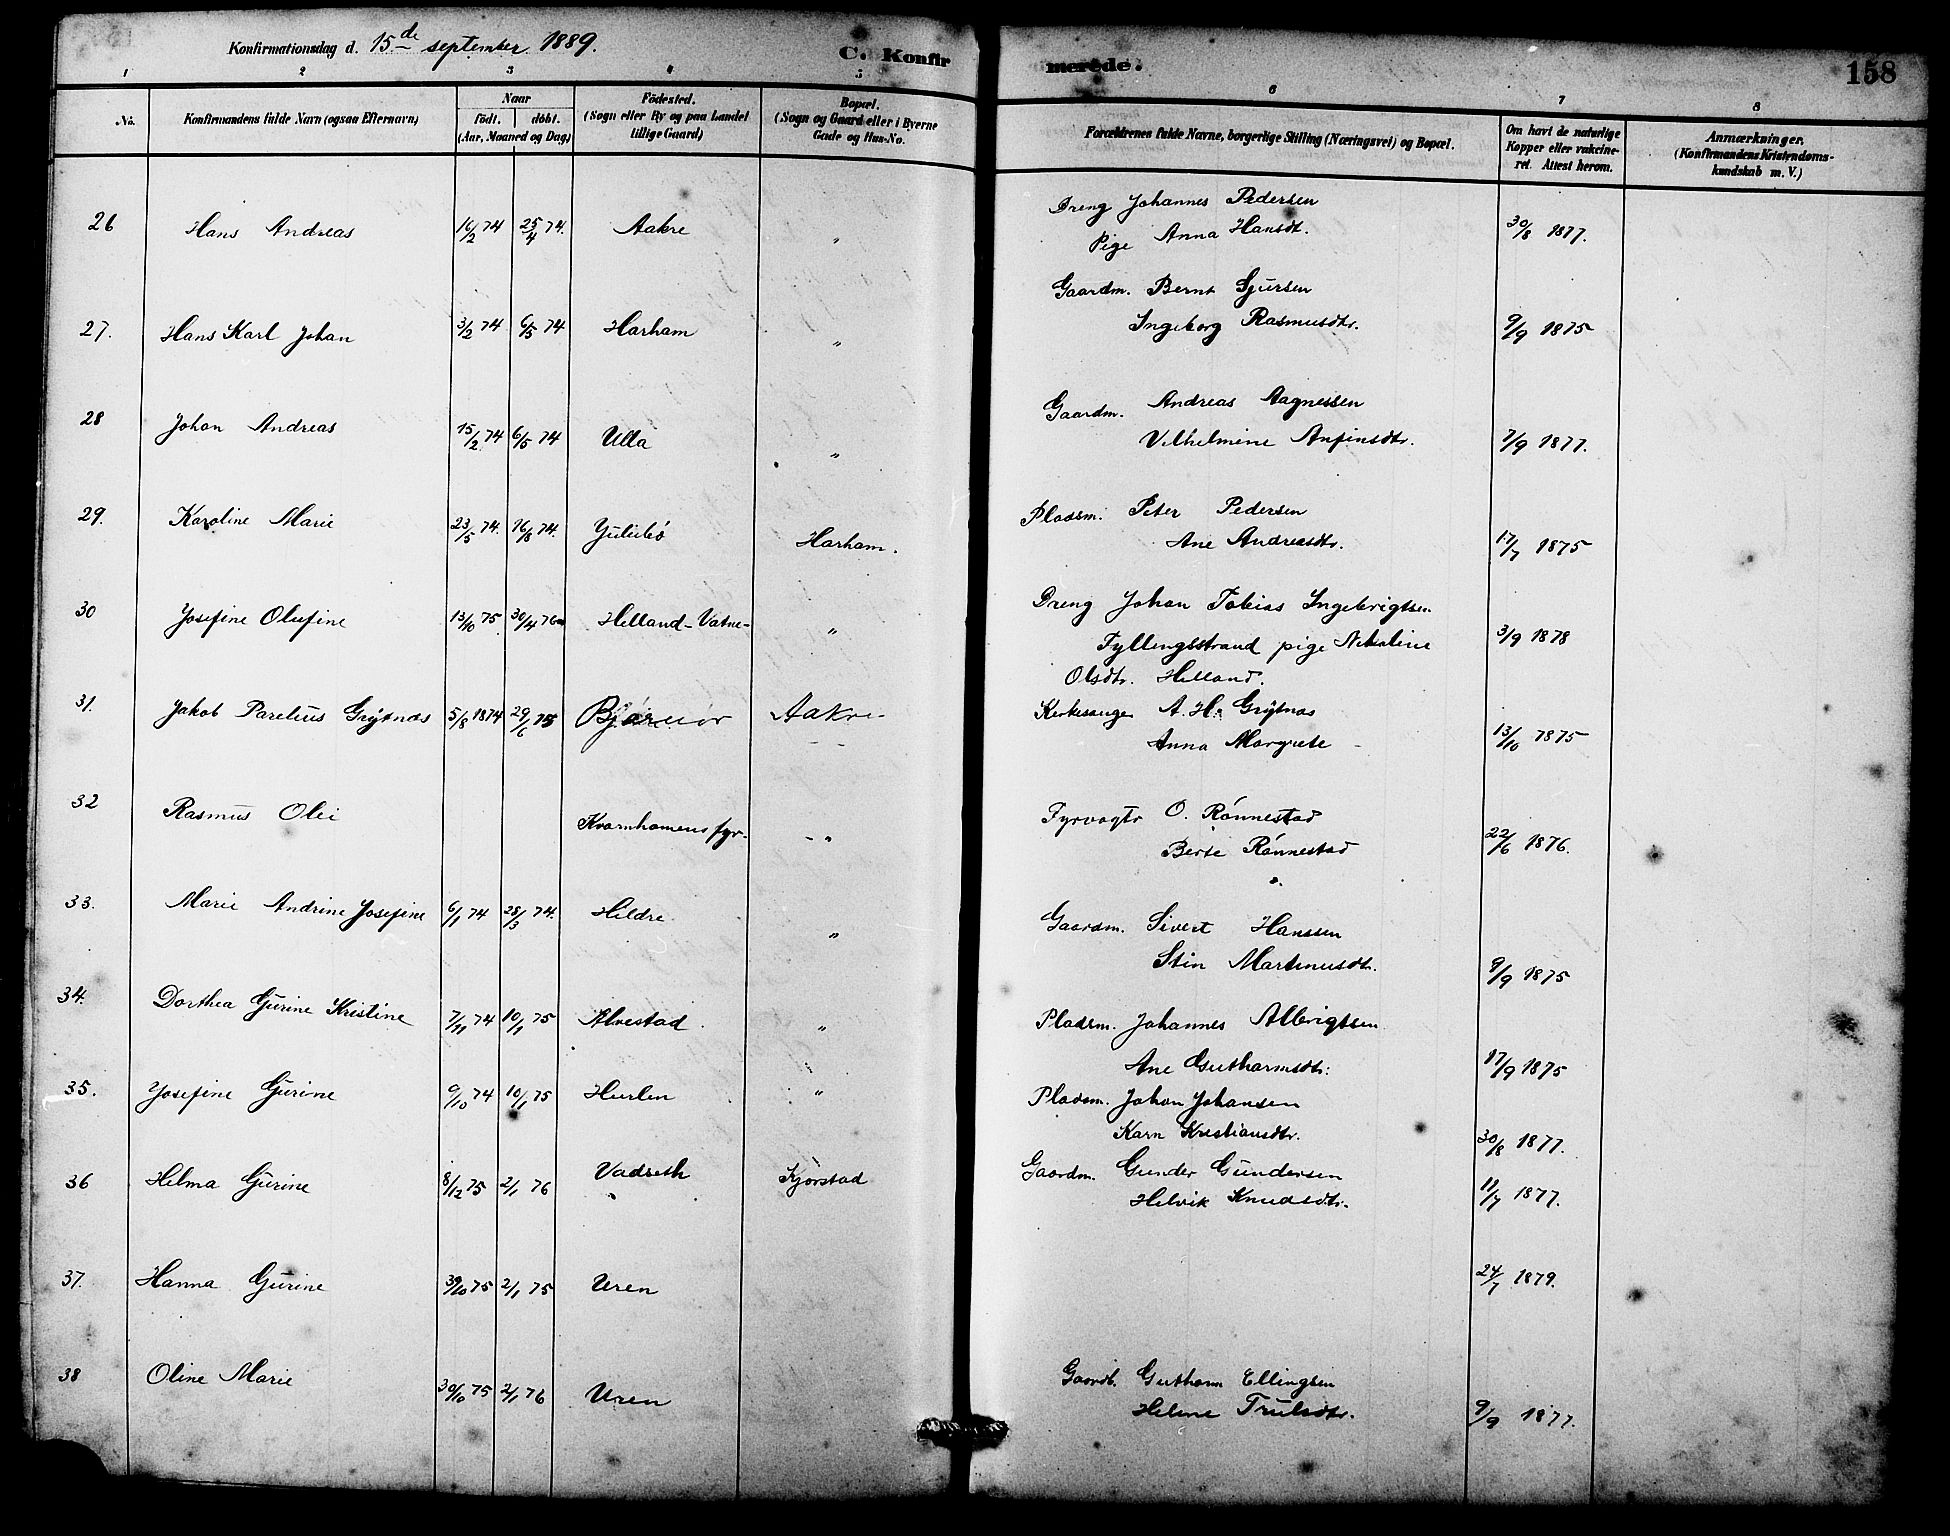 Konfirmationsdag d. 15de september 1889.
C. Konfirmerede.
158
1 2 3 4 5 6 7 8
No.
Konfirmandens fulde Navn (ogsaa Efternavn)
Naar
født. døbt.
(Aar, Maaned og Dag)
Fødested.
(Sogn eller By og paa Landet
tillige Gaard)
Bopæl.
(Sogn og Gaard eller i Byerne
Gade og Hus-No.
Forældrenes fulde Navne, borgerlige Stilling (Næringsvei) og Bopæl.
Om havt de naturlige
Kopper eller vakcine-
ret. Attest herom.
Anmærkninger.
(Konfirmandens Kristendoms-
kundskab m. V.)
26 Hans Andreas 16/2 74 25/4 74. Aakre " Dreng Johannes Pedersen
Pige Anna Hansdt. 30/8 1877.
27. Hans Karl Johan 3/2 74 6/5 74 Harham " Gaardm. Bernt Sjursen
Ingeborg Rasmusdtr. 9/9 1875
28 Johan Andreas 15/2 74 6/5 74 Ulla " Gaardm. Andreas Aagnessen
Vilhelmine Anfinsdtr. 7/9 1877.
29. Karoline Marie 23/5 74. 16/8 74. Harham. Pladsm. Peter Pedersen
Ane Andreasdtr. 17/7 1875
30 Josefine Olufine 13/10 75 30/4 76 Helland-Vatne- " Dreng Johan Tobias Ingebrigtsen
Fyllingsstrand pige Nikoline 3/9 1878
Olsdtr. Helland.
31. Jakob Parelius Grytnæs 5/8 1874 29/6 75 Bjørnør Aakre Kirkesanger A. H. Grytnæs
Anna Margrete 13/10 1875
32 Rasmus Olei Kvarnhomens fyr. - " Fyrvogtr O. Rønnestad
Berte Rønnestad 22/6 1876.
33. Marie Andrine Josefine 6/1 74 28/3 74. Hildre " Gaardm. Sivert Hanssen
Stin Martinusdt. 9/9 1875
34. Dorthea Gurine Kristine 7/11 74 10/1 75 Alvestad " Pladsm. Johannes Albrigtsen
Ane Guthormsdtr. 17/9 1875
35. Josefine Gurine 9/10 74 10/1 75 Hurlen " Pladsm. Johan Johansen
Karn Kristiansdtr. 30/8 1877.
36 Helma Gurine 8/12 75 2/1 76 Vadseth Kjørstad Gaardm. Gunder Gundersen
Helvik Knudsdtr. 11/7 1877.
37. Hanna Gurine 30/10 75 2/1 75 Uren 24/7 1879.
38 Oline Marie 30/10 75 2/1 76 Uren Gaardb. Guthorm Ellingsen
Helene Trulsdtr. 9/9 1877.